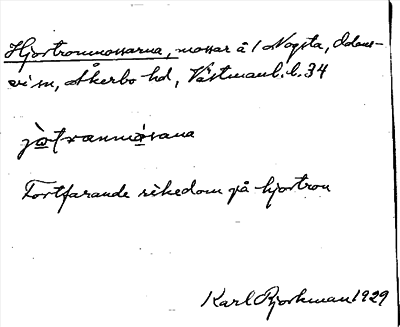 Hjortronmossarna, mossar å 1 Nogsta, Odens-
vi sn, Åkerbo hd, Västmanl. l. 34
jò̤tranmå̤sana
Fortfarande rikedom på hjortron
Karl Björkman 1929